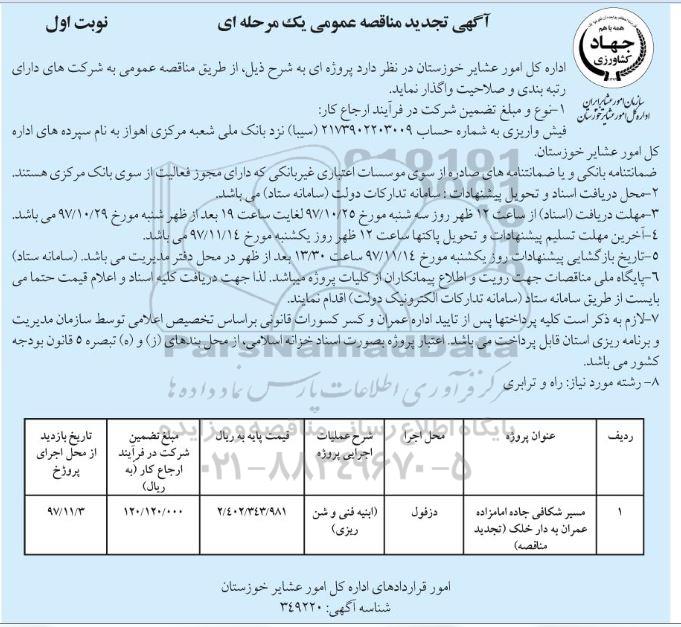 آگهی تجدید مناقصه عمومی یک مرحله ای
نوبت اول
همه با هم
جهاد
کشاورزی
سازمان امور عشایر ایران
اداره کل امور عشایر خوزستان
اداره کل امور عشایر خوزستان در نظر دارد پروژه ای به شرح ذیل، از طریق مناقصه عمومی به شرکت های دارای
رتبه بندی و صلاحیت واگذار نماید.
۱-نوع و مبلغ تضمین شرکت در فرآیند ارجاع کار:
فیش واریزی به شماره حساب ۲۱۷۳۹۰۲۲۰۳۰۰۹ (سیبا) نزد بانک ملی شعبه مرکزی اهواز به نام سپرده های اداره
کل امور عشایر خوزستان.
ضمانتنامه بانکی و یا ضمانتنامه های صادره از سوی موسسات اعتباری غیربانکی که دارای مجوز فعالیت از سوی بانک مرکزی هستند.
۲-محل دریافت اسناد و تحویل پیشنهادات : سامانه تدارکات دولت (سامانه ستاد) می باشد.
۳-مهلت دریافت (اسناد) از ساعت ۱۲ ظهر روز سه شنبه مورخ ۹۷/۱۰/۲۵ لغایت ساعت ۱۹ بعد از ظهر شنبه مورخ ۹۷/۱۰/۲۹ می باشد.
۴-آخرین مهلت تسلیم پیشنهادات و تحویل پاکتها ساعت ۱۲ ظهر روز یکشنبه مورخ ۹۷/۱۱/۱۴ می باشد.
۵-تاریخ بازگشایی پیشنهادات روز یکشنبه مورخ ۹۷/۱۱/۱۴ ساعت ۱۳/۳۰ بعد از ظهر در محل دفتر مدیریت می باشد. (سامانه ستاد)
۶-پایگاه ملی مناقصات جهت رویت و اطلاع پیمانکاران از کلیات پروژه میباشد. لذا جهت دریافت کلیه اسناد و اعلام قیمت حتما می
بایست از طریق سامانه ستاد (سامانه تدارکات الکترونیک دولت) اقدام نمایند.
۷-لازم به ذکر است کلیه پرداختها پس از تایید اداره عمران و کسر کسورات قانونی براساس تخصیص اعلامی توسط سازمان مدیریت
و برنامه ریزی استان قابل پرداخت می باشد. اعتبار پروژه بصورت اسناد خزانه اسلامی، از محل بندهای (ز) و (ه) تبصره ۵ قانون بودجه
کشور می باشد.
۸- رشته مورد نیاز: راه و ترابری
ParsNamadData
مرکز فرآوری اطلاعات پارس نماد داده ها
پایگاه اطلاع رسانی مناقصه و مزایده
۰۲۱-۸۸۳۴۹۶۷۰-۵
ردیف | عنوان پروژه | محل اجرا | شرح عملیات اجرایی پروژه | قیمت پایه به ریال | مبلغ تضمین شرکت در فرآیند ارجاع کار (به ریال) | تاریخ بازدید از محل اجرای پروژخ
۱ | مسیر شکافی جاده امامزاده عمران به دار خلک (تجدید مناقصه) | دزفول | (ابنیه فنی و شن ریزی) | ۲/۴۰۲/۳۴۳/۹۸۱ | ۱۲۰/۱۲۰/۰۰۰ | ۹۷/۱۱/۳
امور قراردادهای اداره کل امور عشایر خوزستان
شناسه آگهی: ۳۴۹۲۲۰